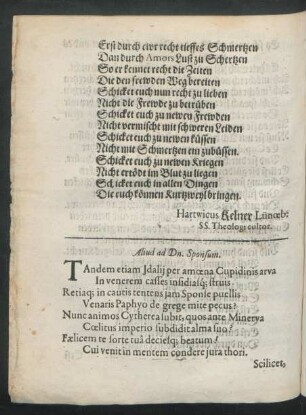 Erst durch ewr recht tieffes Schmertzen
Dan durch Amors Lust zu Schertzen
So erkennet recht die Zeiten
Die den frewden Weg bereiten
Schicket euch nun recht zu lieben
Nicht die Frewde zu betrüben
Schicket euch zu newen Frewden
Nicht vermischt mit schweren Leiden
Schicket euch zu newen küssen
Nicht mit Schmertzen ein zubüssen.
Schicket euch zu newen Kriegen
Nicht ertödt im Blut zu liegen
Schicket euch in allen Dingen
Die euch können Kurtzweyl bringen.
Hartwicus Kelner Lünæb:
SS. Theologi cultor.
Aliud ad Dn. Sponsum.
TAndem etiam Jdalij per amœna Cupidinis arva
In venerem casses insidiasq; struis
Retiaq; in cautis tentens jam Sponse puellis
Venaris Paphyo de grege mite pecus?
Nunc animos Cytherea subit, quos ante Minerva
Cœlitus imperio subdidit alma suo?
Fœlicem te sorte tuâ deciesq; beatum!
Cui venit in mentem condere jura thori.
Scilicet,